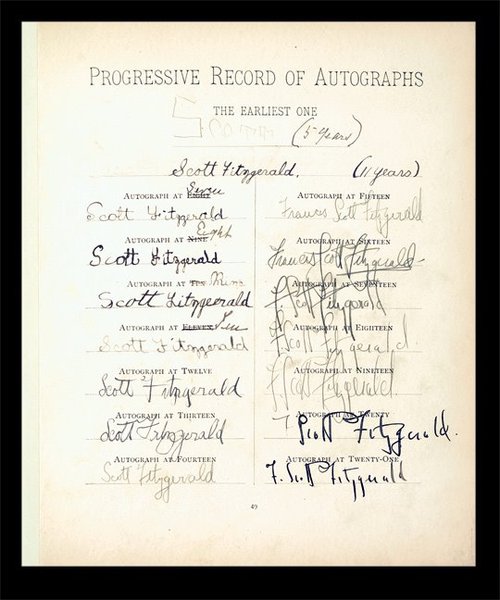 PROGRESSIVE RECORD OF AUTOGRAPHS
THE EARLIEST ONE
(5 years)
Scott Fitzgerald. (11 years)
AUTOGRAPH AT EIGHT Seven
Scott Fitzgerald
AUTOGRAPH AT NINE Eight
Scott Fitzgerald
AUTOGRAPH AT TEN Nine
Scott Fitzgeorald
AUTOGRAPH AT ELEVEN Ten
Scott Fitzgerald
AUTOGRAPH AT TWELVE
Scott Fitzgerald
AUTOGRAPH AT THIRTEEN
Scott Fitzgerald
AUTOGRAPH AT FOURTEEN
Scott Fitzgerald
AUTOGRAPH AT FIFTEEN
Francis Scott Fitzgerald
AUTOGRAPH AT SIXTEEN
Francis Scott Fitzgerald
AUTOGRAPH AT SEVENTEEN
F Scott Fitzgerald
AUTOGRAPH AT EIGHTEEN
F Scott Fitzgerald
AUTOGRAPH AT NINETEEN
F Scott Fitzgerald
AUTOGRAPH AT TWENTY
F Scott Fitzgerald.
AUTOGRAPH AT TWENTY-ONE
F. Scott Fitzgerald
49